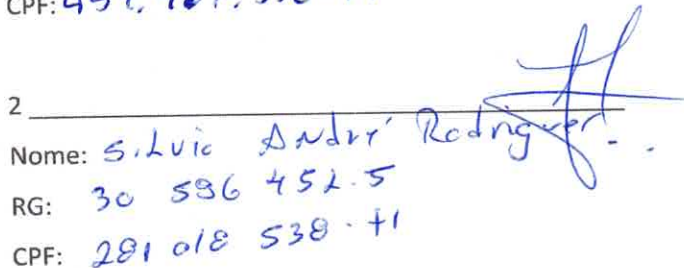 CPF:
2
Nome: Silvio André Rodrigues
RG: 30 596 452.5
CPF: 281 018 538.